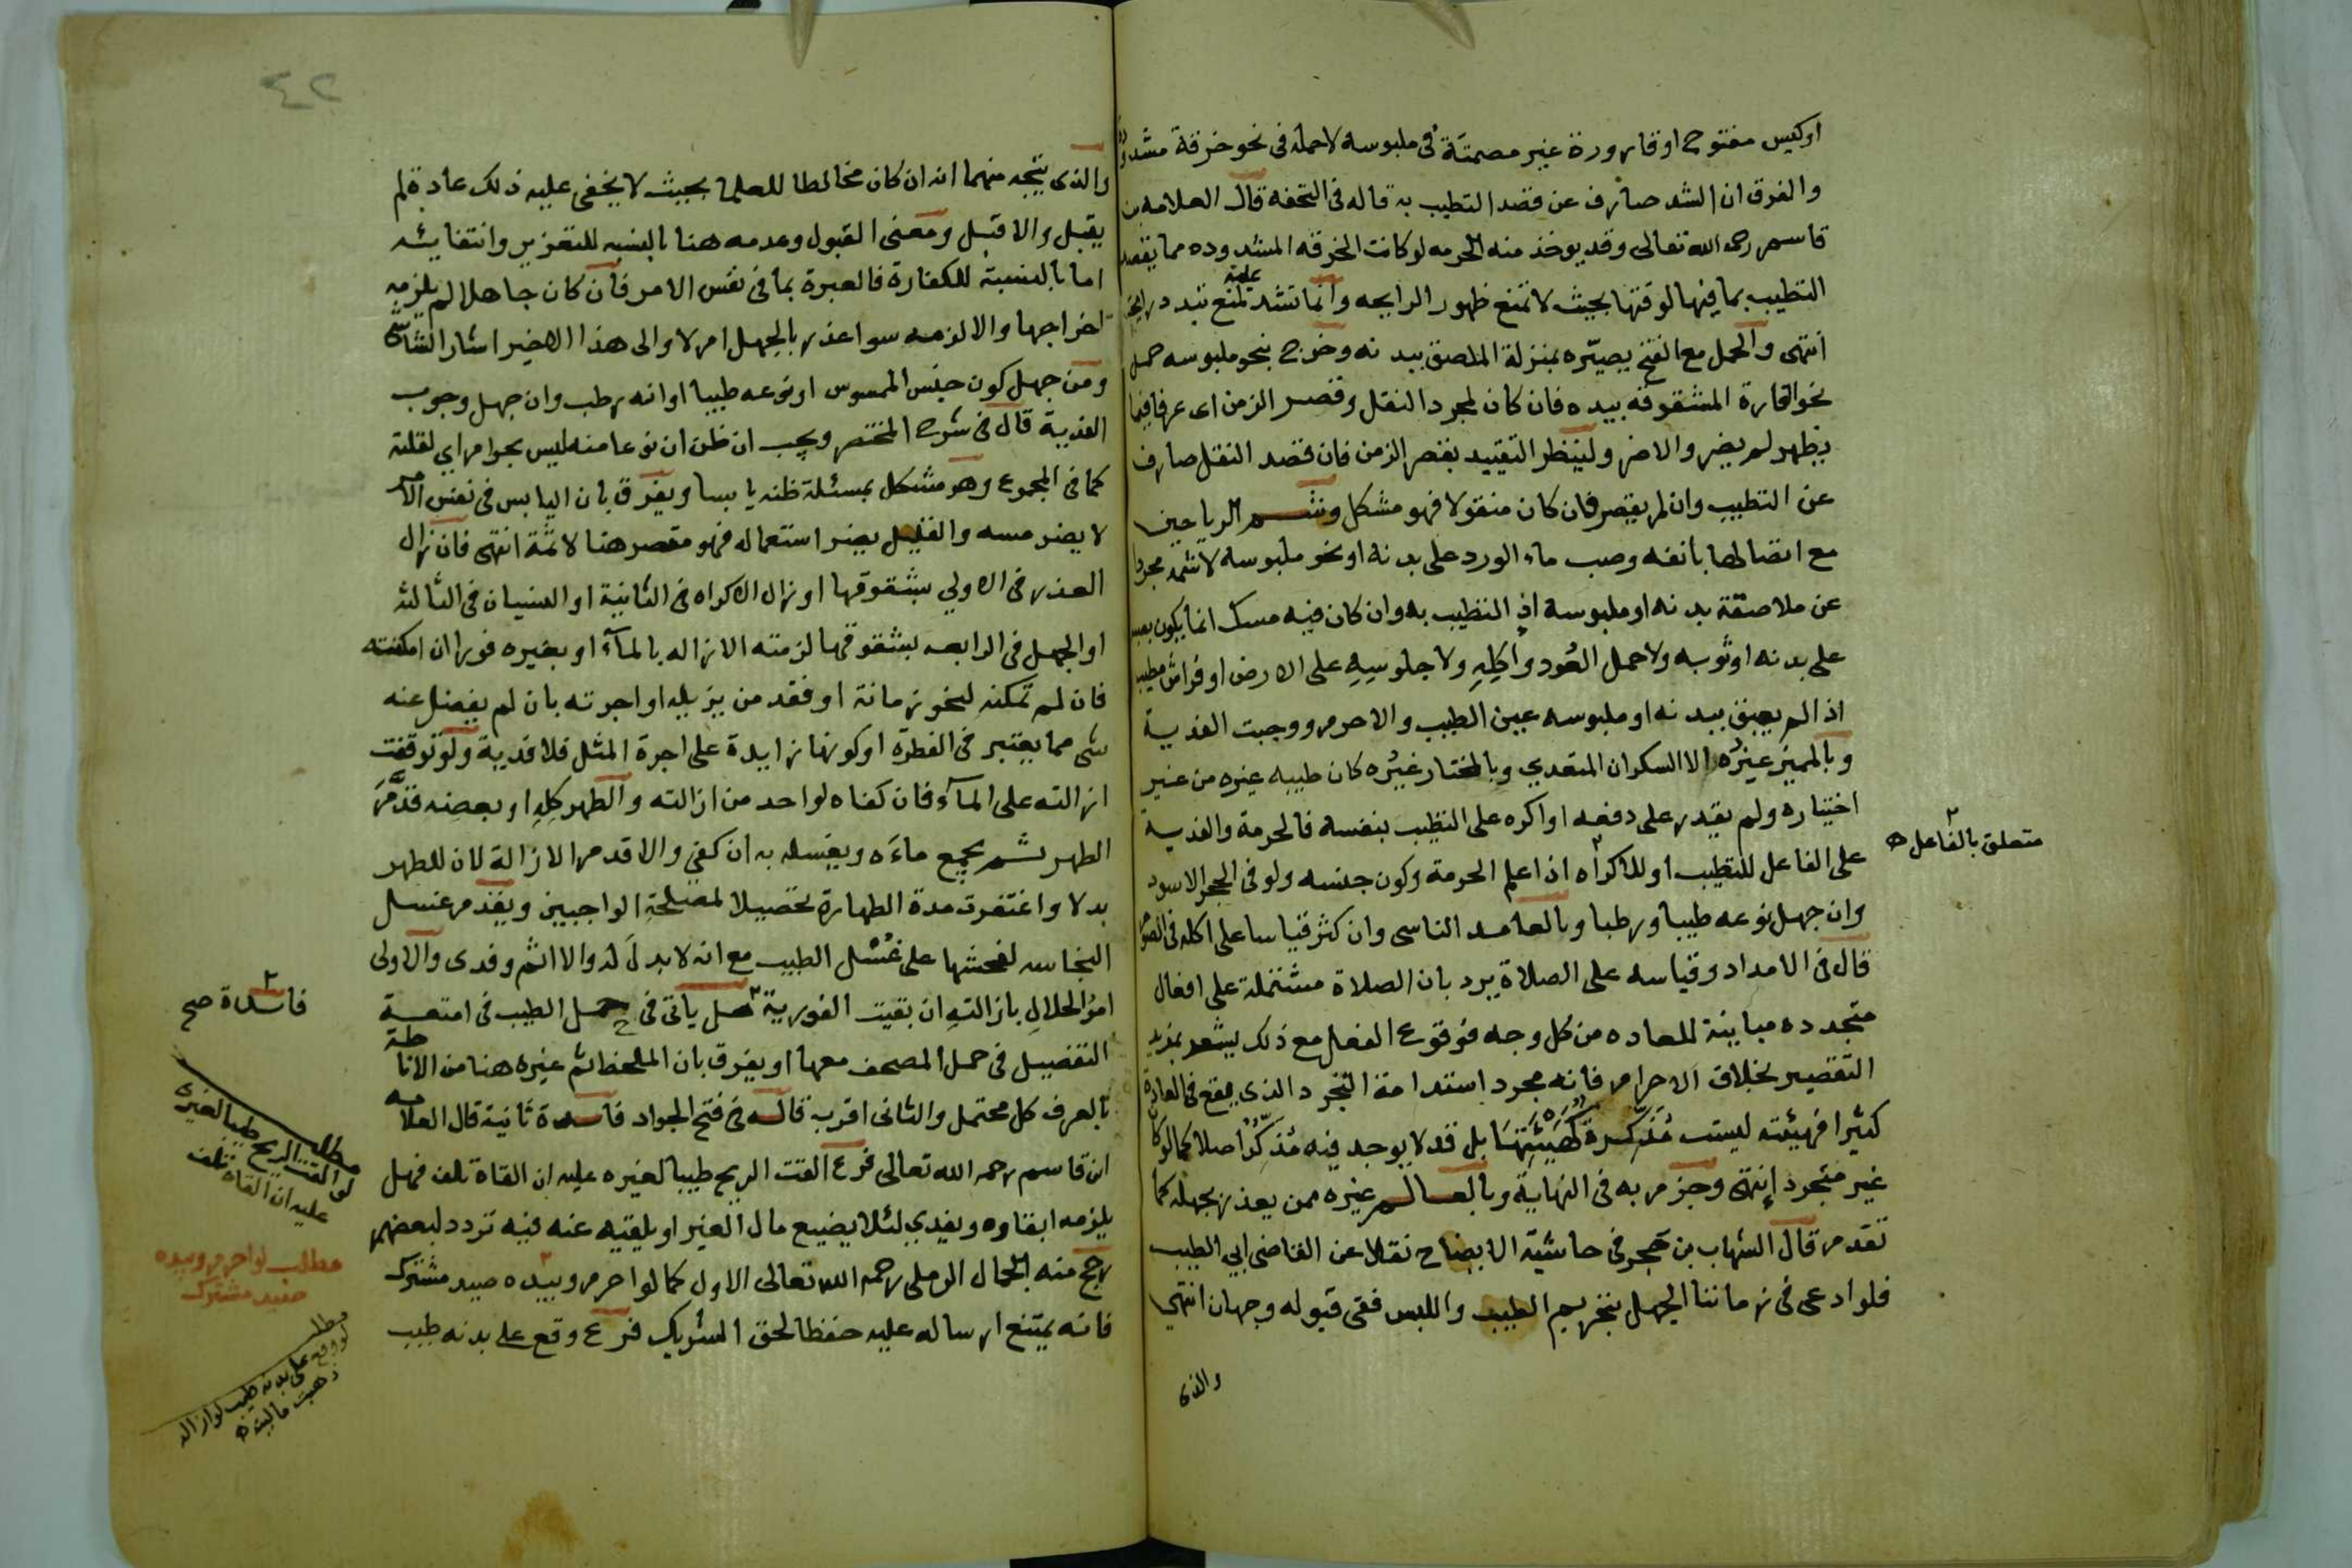 اوكيس مفتوح او قارورة غير مصمتة في ملبوسه لا حمله في نحو خرقة مشدودة
والفرق ان الشد صارف عن قصد التطيب به قاله في التحفه قال العلامه بن
قاسم رحمه الله تعالى وقد يوخذ منه الحرمه لو كانت الخرقه المشدوده مما يقصد
التطيب بما فيها لوقتها بحيث لا تمنع ظهور الرايحه وانما تشد عليه لمنع تبدد
انتهى والحمل مع الفتح يصيّره بمنزلة الملصق ببدنه وخرج بنحو ملبوسه حمل
نحو الفارة المشقوقه بيده فان كان لمجرد النقل وقصر الزمن اى عرفا فيما
يظهر لم يضر والا ضر ولينظر التقييد بقصر الزمن فان قصد النقل صارف
عن التطيب وان لم يقصر فان كان منقولا فهو مشكل وشم الرياحين
مع اتصالها بأنفه وصب ماء الورد على بدنه او نحو ملبوسه لا شمه مجردا
عن ملاصقة بدنه او ملبوسه اذ التطيب به وان كان فيه مسك انما يكون بصبه
على بدنه او ثوبه ولا حمل العُود وأكلِهِ ولا جلوسِهِ على الارض او فراش مطيب
اذا لم يعبق ببدنه او ملبوسه عين الطيب والا حرم ووجبت الفدية
وبالمميز غيرُه الا السكران المتعدي وبالمختار غيْره كان طيبه غيره من غير
اختياره ولم يقدر على دفعه او اكره على التطيب بنفسه فالحرمة والفدية
على الفاعل للتطيب او للاكراه اذا علم الحرمة وكون جنسه ولو في الحجر الاسود
وان جهل نوعه طيبا ورطبا وبالعامد الناسى وان كثر قياسا على اكله في الصوم
قال في الامداد وقياسه على الصلاة يرد بان الصلاة مشتملة على افعال
متجدده مباينة للعاده من كل وجه فوقوع الفعل مع ذلك يشعر بمزيد
التقصير بخلاف الاحرام فانه مجرد استدامة التجرد الذى يقع في العادة
كثيرا فهيئته ليست مُذَكِّرة كَهَيْئَتِهَا بل قد لا يوجد فيه مُذكِّرٌ اصلا كما لو كان
غير متجرد إنتهى وجزم به في النهاية وبالعالم غيره ممن يعذر بجهله كما
تقدم قال الشهاب بن حجر في حاشية الايضاح نقلا عن القاضي ابي الطيب
فلو ادعى في زماننا الجهل بتحريم الطيب واللبس ففى قبوله وجهان انتهى
والذى
متعلق بالفاعل
٤٢
والذى يتجه منهما انه ان كان مخالطا للعلماء بحيث لا يخفى عليه ذلك عادة لم
يقبل والا قبل ومعنى القبول وعدمه هنا بالنسبه للتعزير وانتفايئه
اما بالنسبة للكفارة فالعبرة بما في نفس الامر فان كان جاهلا لم يلزمه
اخراجها والا لزمه سوا عذر بالجهل ام لا والى هذا الاخير اشار الشاشى
ومن جهل كون جنس الممسوس او نوعه طيبا او انه رطب وان جهل وجوب
الفدية قال في شرح المختصر ويجب ان ظن ان نوعا منه ليس بحرام اي لقلته
كما في المجموع وهو مشكل بمسئلة ظنه يابسا ويفرق بان اليابس في نفس الامر
لا يضر مسه والقليل يضر استعماله فهو مقصر هنا لا ثمة انتهى فان زال
العذر في الاولي بشقوقها او زال الاكراه في الثانية او النسيان في الثالثه
او الجهل في الرابعه بشقوقها لزمته الازاله بالمآء او بغيره فورا ان امكنته
فان لم تمكنه لنحو زمانة او فقد من يزيله او اجرته بان لم يفضل عنه
شى مما يعتبر في الفطرة او كونها زايدة على اجرة المثل فلا فدية ولو توقفت
ازالته على المآء فان كفاه لواحد من ازالته والطهر كلِهِ او بعضِه قدَّمَ
الطهر ثم يجمع ماءه ويغسله به ان كفي والا قدم الازالة لان للطهر
بدلا واغتفرت مدة الطهارة تحصيلا لمصلحة الواجبين ويقدم غسل
النجاسه لفحشها على غُسْل الطيب مع انه لا بدلَ له والا اثم وفدى والاولى
امرُ الحلالِ بازالتهِ ان بقيت الفورية هل يأتى في حمل الطيب في امتعة
التفصيل في حمل المصحف معها او يفرق بان الملحظ ثم غيره هنا من الاناطة
بالعرف كل محتمل والثانى اقرب قاله في فتح الجواد فاسدة ثانية قال العلامه
ابن قاسم رحمه الله تعالى فرع القت الريح طيبا لغيره عليه ان القاه تلف فهل
يلزمه ابقاوه ويفدي لئلا يضيع مال الغير او يلقيه عنه فيه تردد لبعضهم
رجح منه الجمال الرملى رحمه الله تعالى الاول كما لو احرم وبيده صيد مشترك
فانه يمتنع ارساله عليه حفظا لحق الشريك فرع وقع على بدنه طيب
فاسدة صح
مطلب
لو القت الريح طيبا لغيره
عليه ان القاه تلف
مطلب لو احرم وبيده
صيد مشترك
مطلب
لو وقع على بدنه طيب لو ازاله
ذهبت ماليته